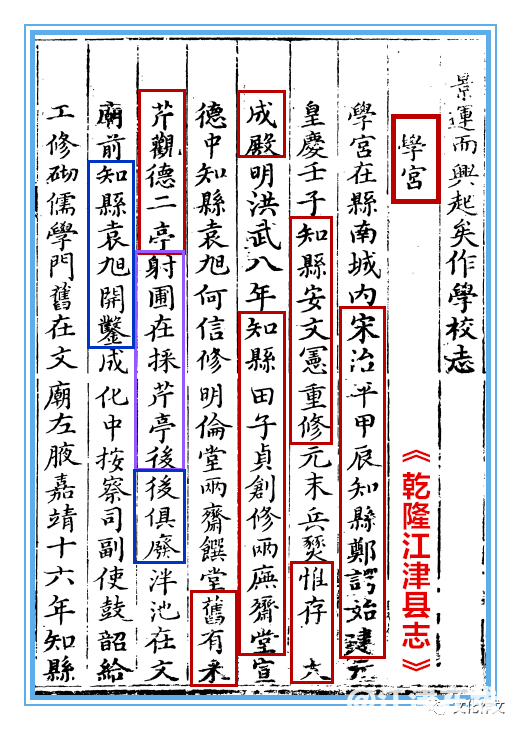 景運而興起矣作學校志
學宮
學宮在縣南城内宋治平甲辰知縣鄭諤始建元
皇慶壬子知縣安文憲重修元末兵燹惟存 大
成殿明洪武八年知縣田子貞創修兩廡齋堂宣
德中知縣袁旭何信修明倫堂兩齋饌堂舊有采
芹觀德二亭射圃在採芹亭後後俱廢泮池在文
廟前知縣袁旭開鑿成化中按察司副使鼓韶給
工修砌儒學門舊在文廟左腋嘉靖十六年知縣
《乾隆江津县志》